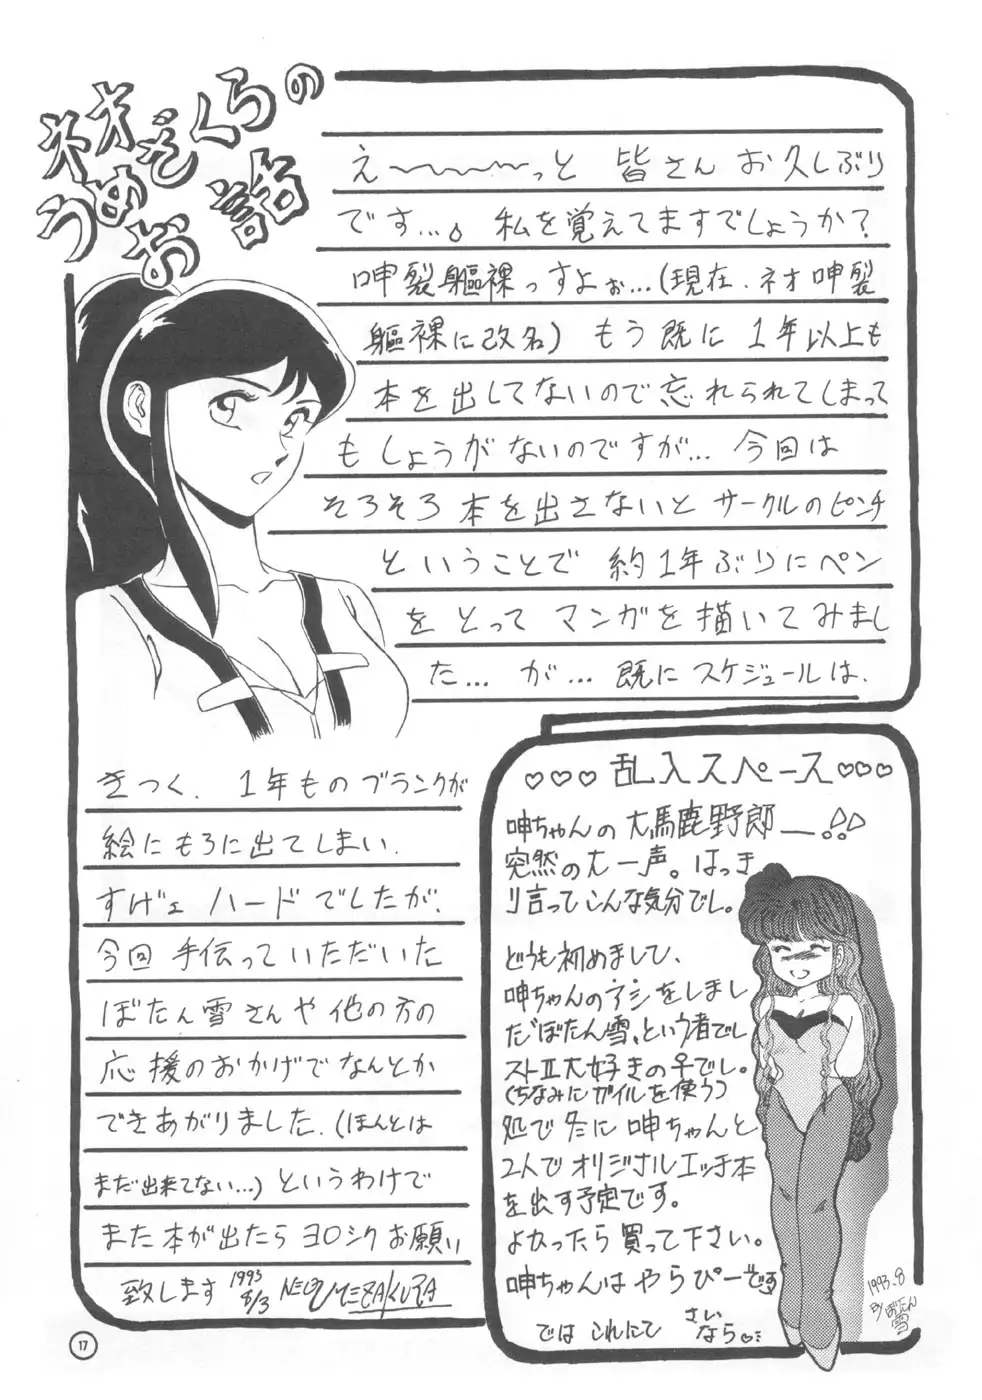 ネオ
うめざくらの
お話
え〜〜〜っと 皆さん お久しぶり
です…。私を覚えてますでしょうか?
呻裂軀裸っすよぉ…(現在、ネオ呻裂
軀裸に改名) もう既に 1年以上も
本を出してないので忘れられてしまって
もしょうがないのですが… 今回は
そろそろ本を出さないとサークルのピンチ
ということで 約1年ぶりにペン
をとって マンガを描いてみまし
た… が… 既にスケジュールは、
きつく、1年ものブランクが
絵にもろに出てしまい、
すげェ ハードでしたが、
今回 手伝っていただいた
ぼたん雪さんや他の方の
応援のおかげでなんとか
できあがりました。(ほんとは
まだ出来てない…)というわけで
また本が出たらヨロシクお願い
致します 1993 8/3 NEO UMEZAKURA
♡♡♡♡乱入スペース♡♡♡♡
呻ちゃんの大馬鹿野郎—!!
突然の大一声。はっき
り言ってこんな気分でし。
どうも初めまして、
呻ちゃんのアシをしまし
た"ぼたん雪"という者でし
ストⅡ大好きの♀でし。
(ちなみにガイルを使う)
処で冬に 呻ちゃんと
2人でオリジナルエッチ本
を出す予定です。
よかったら買って下さい。
呻ちゃんは やらぴーです
では これにて さいなら♡
1993.8
By ぼたん雪
17